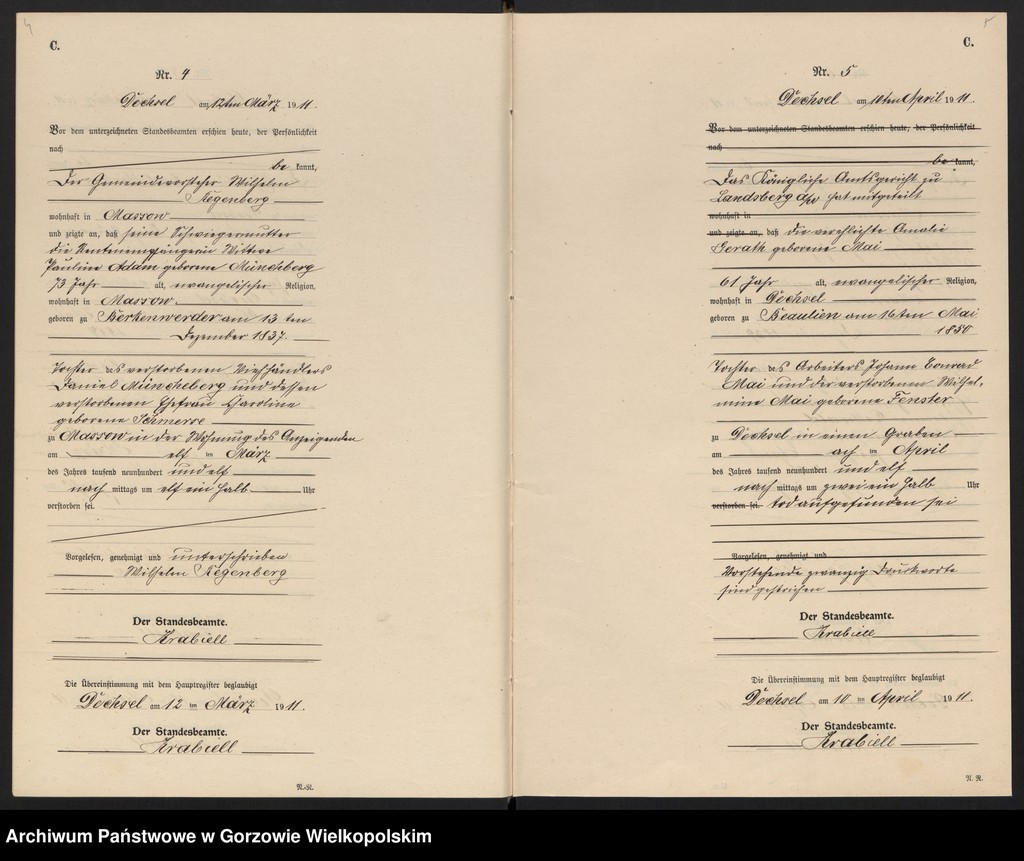 4
C.
Nr. 4
Dechsel am 12ten März 1911.
Vor dem unterzeichneten Standesbeamten erschien heute, der Persönlichkeit
nach
be kannt,
Der Gemeindevorsteher Wilhelm
Regenberg
wohnhaft in Massow
und zeigte an, daß seine Schwiegermutter
die Rentenempfängerin Wittwe
Pauline Adam geborene Müncheberg
73 Jahr alt, evangelischer Religion,
wohnhaft in Massow
geboren zu Berkenwerder am 13 ten
Dezember 1837.
Tochter des verstorbenen Viehhändlers
Daniel Müncheberg und dessen
verstorbenen Ehefrau Charoline
geborene Schmerse
zu Massow in der Wohnung des Anzeigenden
am elf ten März
des Jahres tausend neunhundert und elf
nach mittags um elf ein halb Uhr
verstorben sei.
Vorgelesen, genehmigt und unterschrieben
Wilhelm Regenberg
Der Standesbeamte.
Krabiell
Die Übereinstimmung mit dem Hauptregister beglaubigt
Dechsel am 12 ten März 1911.
Der Standesbeamte.
Krabiell
N.-R.
5
C.
Nr. 5
Dechsel am 10ten April 1911.
Vor dem unterzeichneten Standesbeamten erschien heute, der Persönlichkeit
nach
be kannt,
Das Königliche Amtsgericht zu
Landsberg a/W hat mitgeteilt
wohnhaft in
und zeigte an, daß die verehlichte Amalie
Gerath geborene Mai
61 Jahr alt, evangelischer Religion,
wohnhaft in Dechsel
geboren zu Beaulien am 16ten Mai
1850
Tochter des Arbeiters Johann Conrad
Mai und der verstorbenen Wilhel-
mine Mai geborene Fenster
zu Dechsel in einen Graben
am ach ten April
des Jahres tausend neunhundert und elf
nach mittags um zwei ein halb Uhr
verstorben sei. tod aufgefunden sei
Vorgelesen, genehmigt und
Vorstehende zwanzig Druckworte
sind gestrichen
Der Standesbeamte.
Krabiell
Die Übereinstimmung mit dem Hauptregister beglaubigt
Dechsel am 10 ten April 1911.
Der Standesbeamte.
Krabiell
N. R.
Archiwum Państwowe w Gorzowie Wielkopolskim